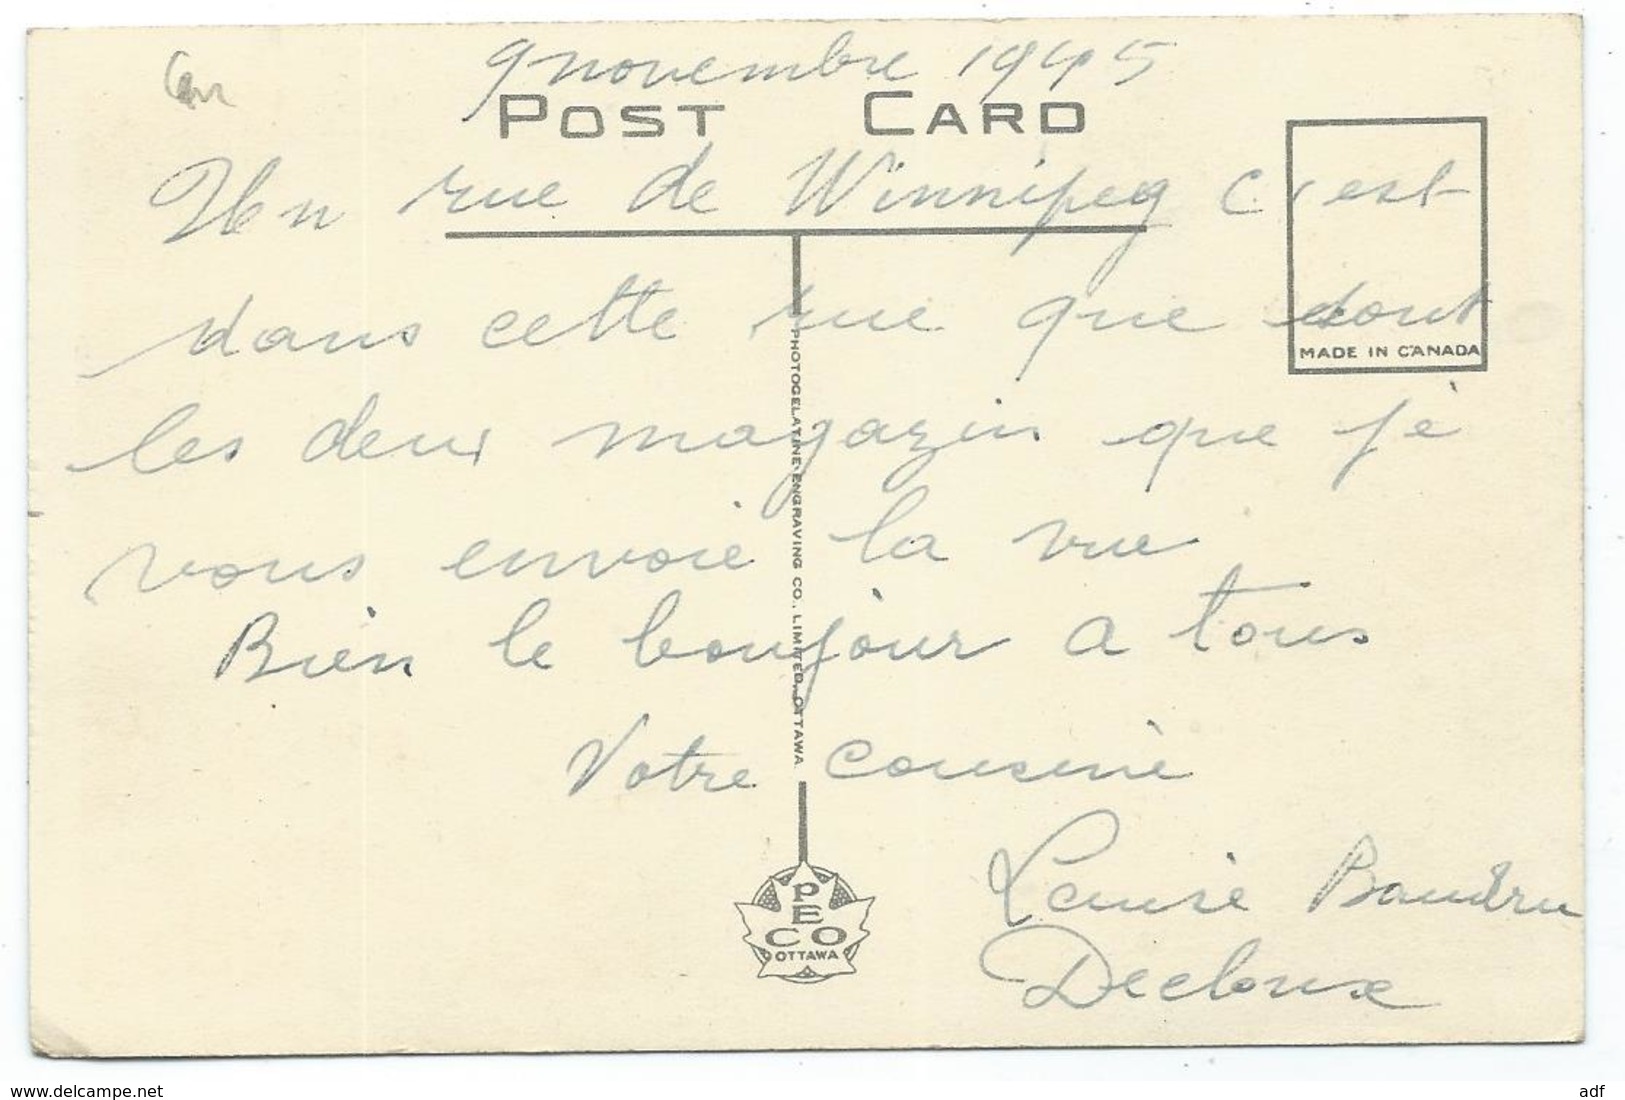 9 novembre 1945
POST CARD
Un rue de Winnipeg c'est
dans cette rue que dont
MADE IN CANADA
les deux magazin que je
vous envoie la vue
Bien le bonjour a tous
Votre cousine
Louise Baudru
Decloux
PHOTOGELATINE ENGRAVING CO., LIMITED, OTTAWA
PECO
OTTAWA
www.delcampe.net
adf